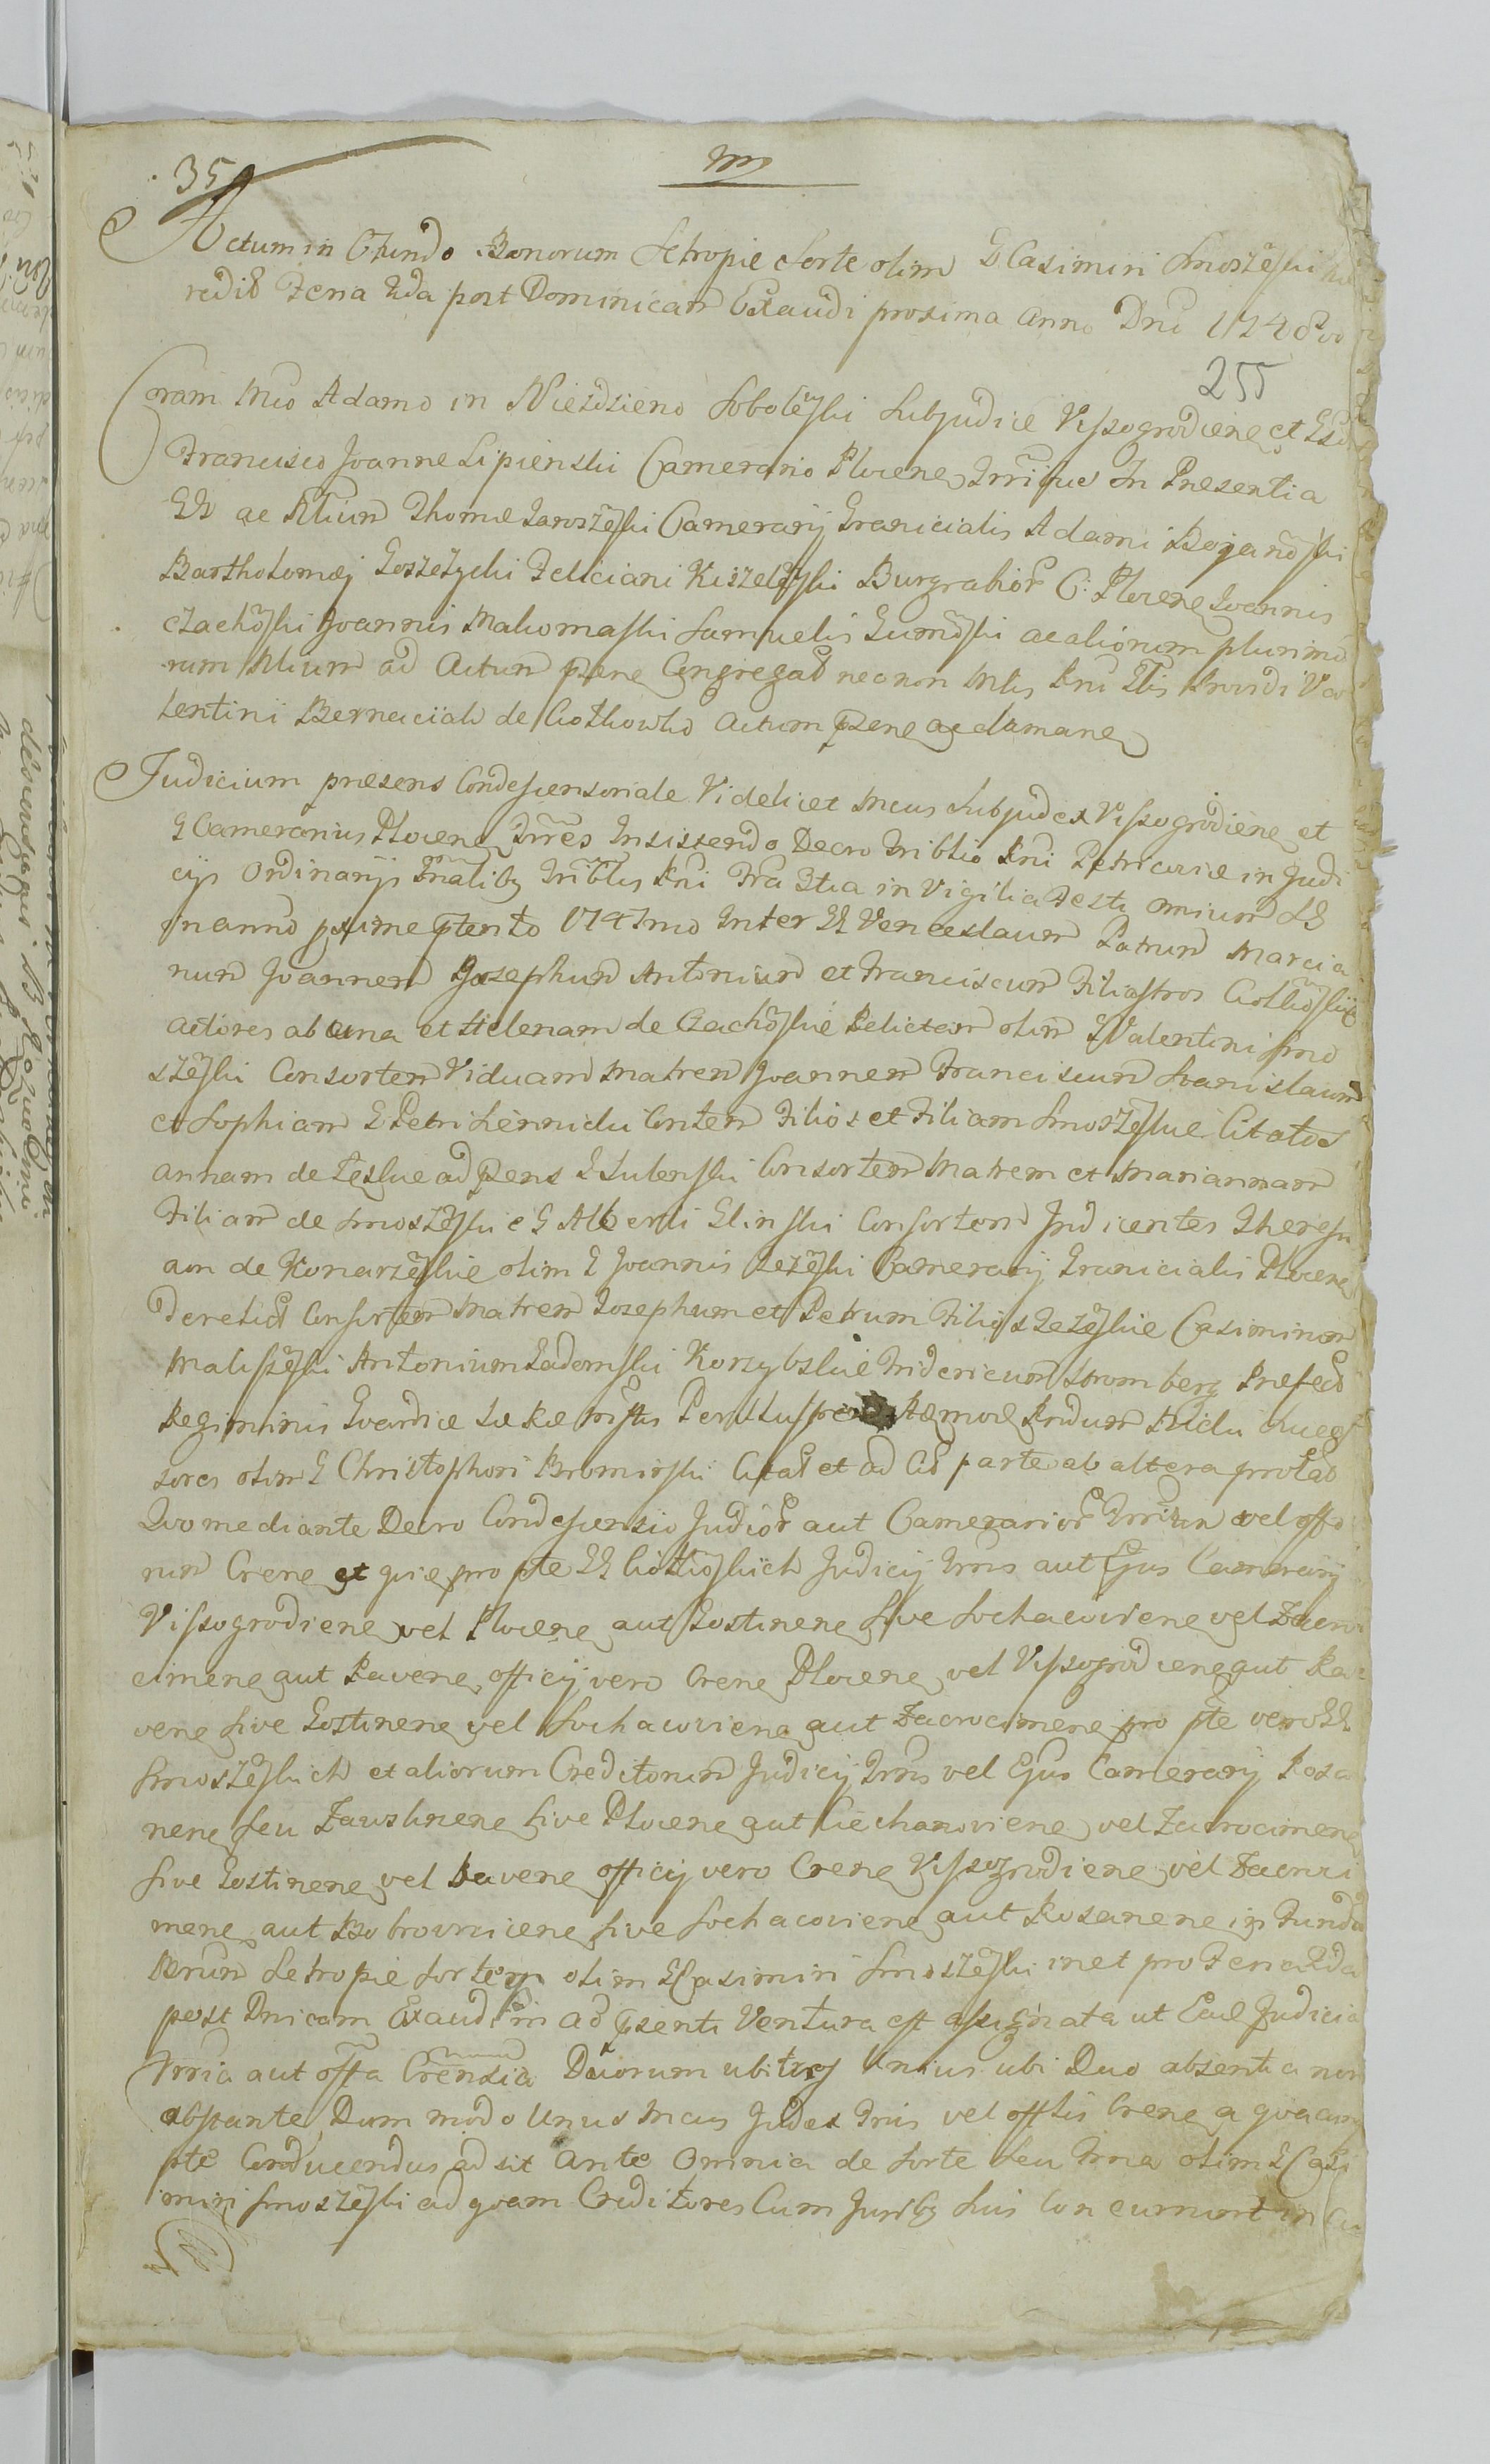 35
m
Actum in Fundo Bonorum Setropie Sorte olim G Casimiri Smoszẽski hæ
redis Feria 2da post Dominicam Exaudi proxima Anno Dni 1748vo
255
Coram Mco Adamo in Niezdzieno Sobolẽski Subjudice Vissogrodiene et Gso
Francisco Joanne Lipienski Camerario Plocene Trriique In Præsentia
GG ac Nlium Thomæ Jaroszẽski Camerarij Granicialis Adami Bojanõski
Bartholomæj Goszczycki Feliciani Kiszelẽski Burgrabior C: Plocene Joannis
Czachõski Joannis Makomaski Samuelis Gumõski ac aliorum plurimo
rum Nlium ad Actum psene Congregat necnon Mlis Rni Glis Providi Va
lentini Bernaciak de Ciotkowko Actum psene acclamane
Judicium præsens Condescensoriale Videlicet Mcus Subjudex Vissogrodiene et
G Camerarius Plocene Trres Insistendo Decro Triblio Rni Petricoviæ in Judi
cijs Ordinarijs Gnalibz Triblus Rni Fria 3tia in Vigilia Festi omnium SS
in anno pxime ptento 1747mo Inter GG Venceslaum Patrum Marcia
num Joannem Josephum Antonium et Franciscum Filiastros Ciotkõskie
actores ab una et Helenam de Czachõskie Relictam olim G Valentini Smo
szẽski Consortem Viduam Matrem Joannem Franciscum Stanislaum
et Sophiam G Petri Lennicki Contem Filios et Filiam Smoszẽskie Citatos
annam de Zeskie ad psens G Sulenski Consortem Matrem et Mariannam
Filiam de Smoszẽskie G Alberti Glinski Consortem Indicentes Theresi
am de Konarzẽskie olim G Joannis Zezẽski Camerarij Granicialis Plocene
Derelict Consortem Matrem Josephum et Petrum Filios Zezẽskie Casimirum
Maliszẽski Antonium Zadomski Korzybskie Fridericum Stromberg Præfect
Regiminis Gvardiæ Sæ Ræ Mstis Perillustrem Admod Rndum Nicki Succes
sores olim G Christophori Bromirski Citat et ad Cit parte ab altera prolat
Quo mediante Decro Condescensio Judicior aut Camerarior Trrium vel offo
rum Crene et quie pro pte GG Ciotkõskich Judicij Trris aut Ejus Camerarij
Vissogrodiene vel Plocene aut Gostinene sive Sochacoviene vel Zacro
cimene aut Ravene officij vero Crene Plocene vel Vissogrodiene aut Ra
vene sive Gostinene vel Sochacoviene aut Zacrocimene pro pte vero GG
Smoszẽskich et aliorum Creditorum Judicij Trris vel Ejus Camerarij Rosa
nene seu Zawskrnene sive Plocene aut Ciechanoviene vel Zacrocimene
sive Gostinene vel Ravene officij vero Crene Vissogrodiene vel Zacroci
mene aut Bobrovnicene sive Sochacoviene aut Rosanene in Fundo
Bnrum Setropie Sortem olim G Casimiri Smoszẽski inet pro Feria 2da
post Dnicam Exaudi in ad psenti Ventura est assignata ut Ead Judicia
Trria aut offa Crensia Duorum ubi tres Unius ubi Duo absentia non
obstante Dum modo Unus Mcus Judex Trris vel offlis Crene a qvacunq
pte Conducendus adsit ante Omnia de Sorte seu Trna olim G Casi
miri Smoszẽski ad qvam Creditores Cum Juribz suis Concurrunt in